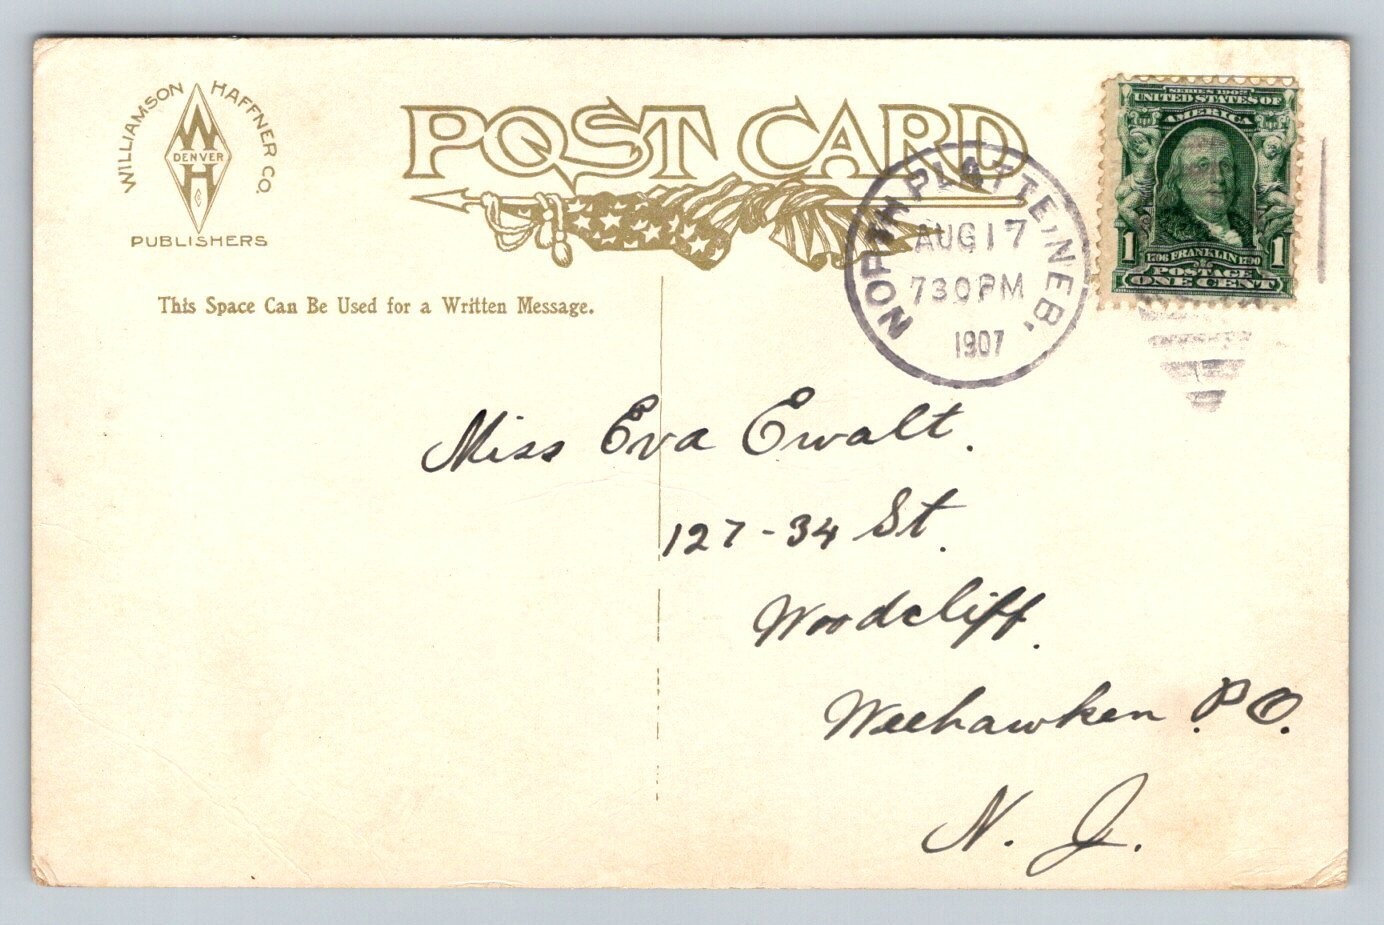 WILLIAMSON HAFFNER CO.
W
DENVER
H
C
PUBLISHERS
POST CARD
SERIES 1902
UNITED STATES OF
AMERICA
1 1
1706 FRANKLIN 1790
POSTAGE
ONE CENT
NORTH PLATTE, NEB.
AUG 17
730PM
1907
This Space Can Be Used for a Written Message.
Miss Eva Ewalt.
127-34 St.
Woodcliff.
Weehawken P.O.
N. J.